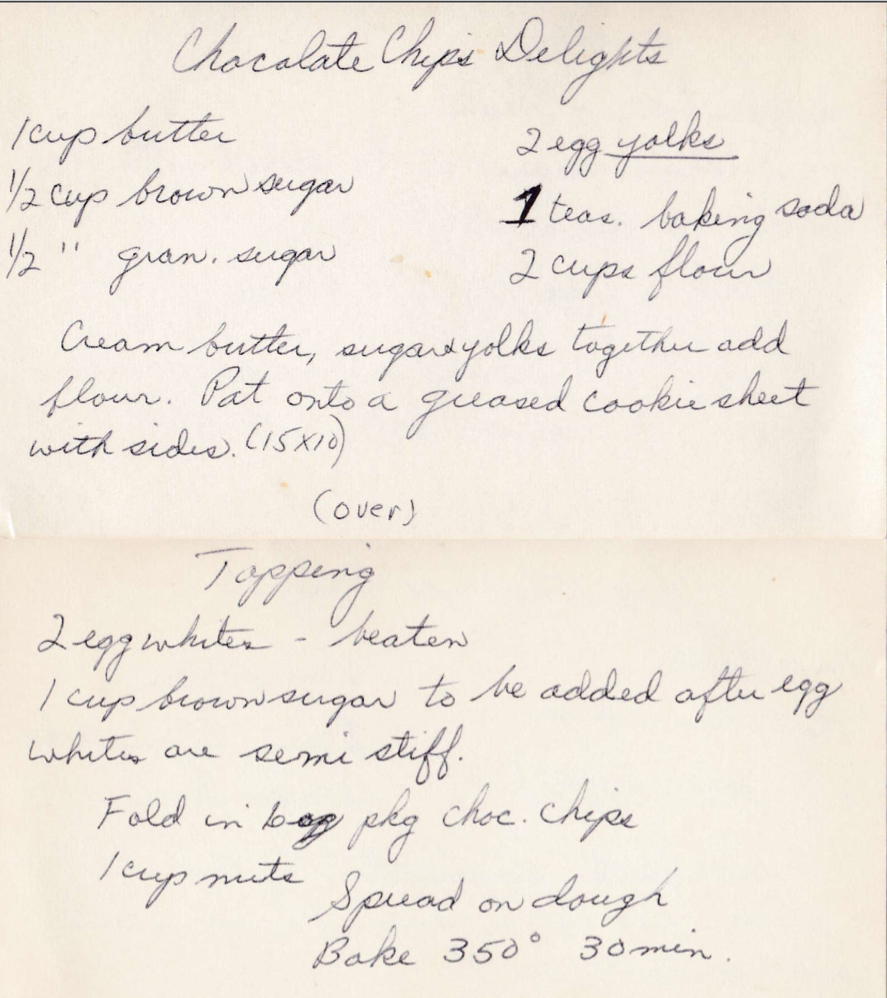 Chocolate Chips Delights
1 cup butter
1/2 cup brown sugar
1/2 " gran. sugar
2 egg yolks
1 teas. baking soda
2 cups flour
Cream butter, sugar & yolks together add
flour. Pat onto a greased cookie sheet
with sides. (15x10)
(over)
Topping
2 egg whites - beaten
1 cup brown sugar to be added after egg
whites are semi stiff.
Fold in pkg choc. chips
1 cup nuts
Spread on dough
Bake 350° 30 min.